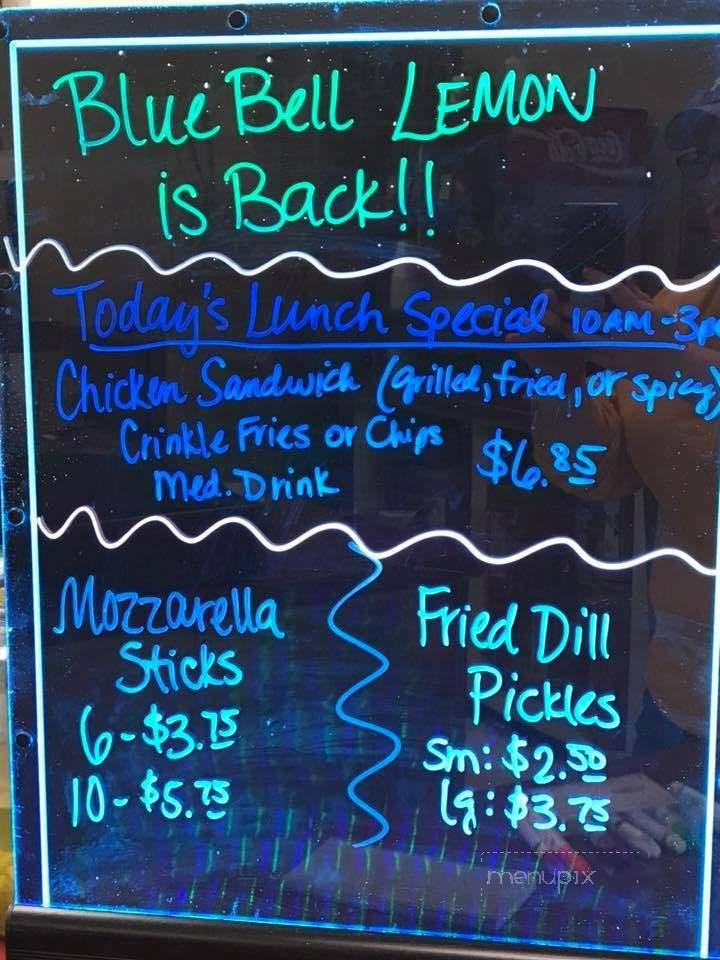 Blue Bell LEMON
is Back!!
Today's Lunch Special 10AM-3p
Chicken Sandwich (grilled, fried, or spicy)
Crinkle Fries or Chips
$6.85
Med. Drink
Mozzarella
Sticks
6-$3.75
10-$5.75
Fried Dill
Pickles
Sm: $2.50
lg: $3.75
menupix